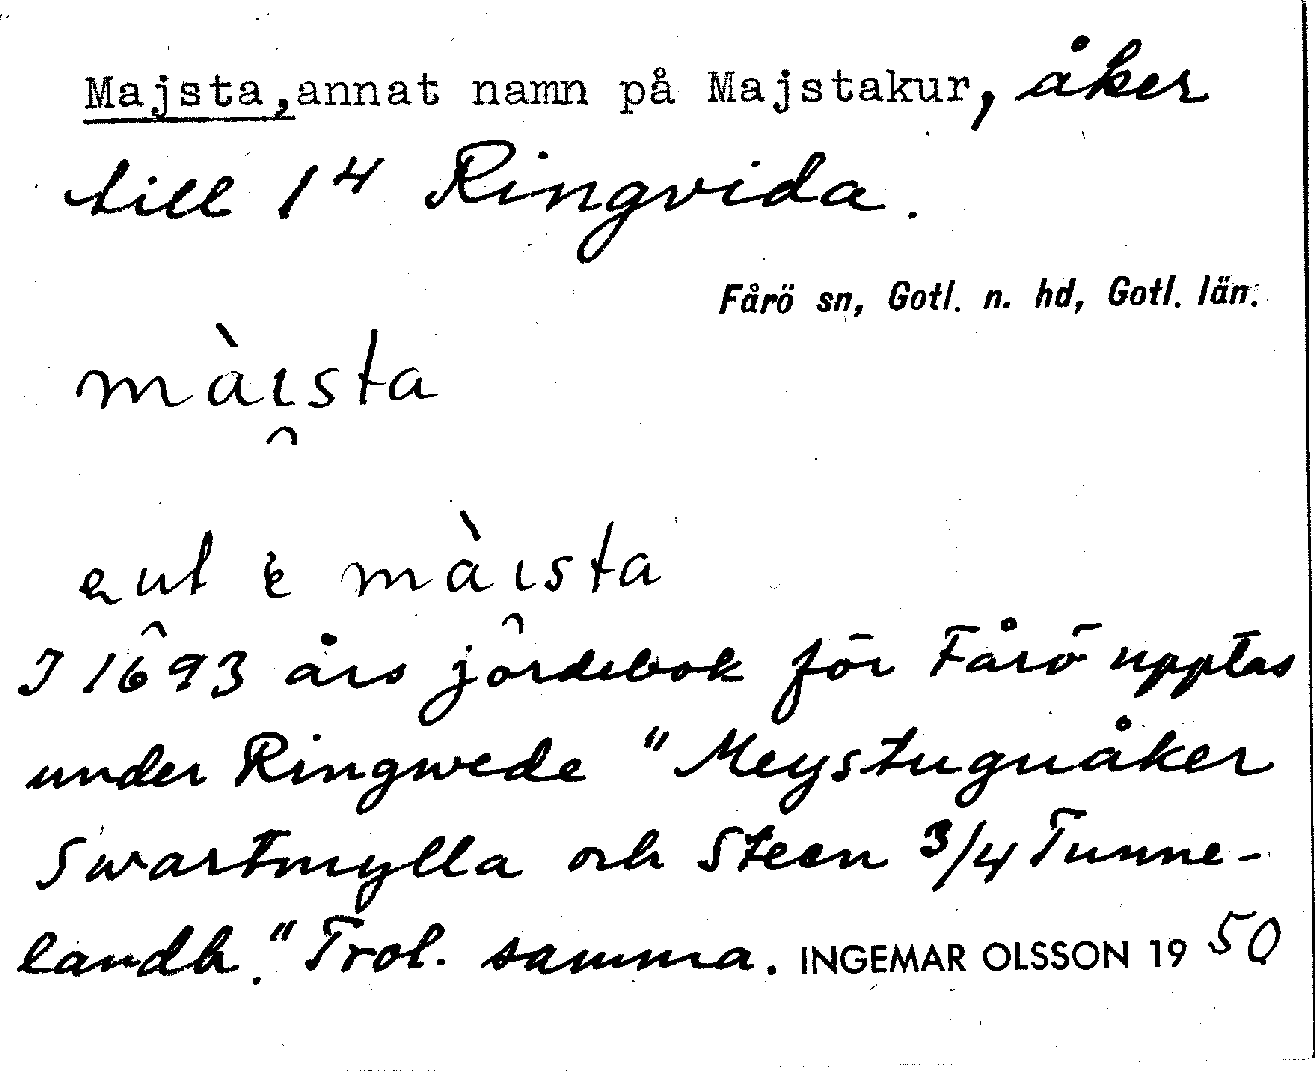 Majsta, annat namn på Majstakur, åker
till 1⁴ Ringvida.
Fårö sn, Gotl. n. hd, Gotl. län.
màɩ̯sta
màɩ̯sta
I 1693 års jordebok för Fårö upptas
under Ringwede "Meystuguåker
Swartmylla och Steen 3/4 Tunne-
landh." Trol. samma. INGEMAR OLSSON 1950